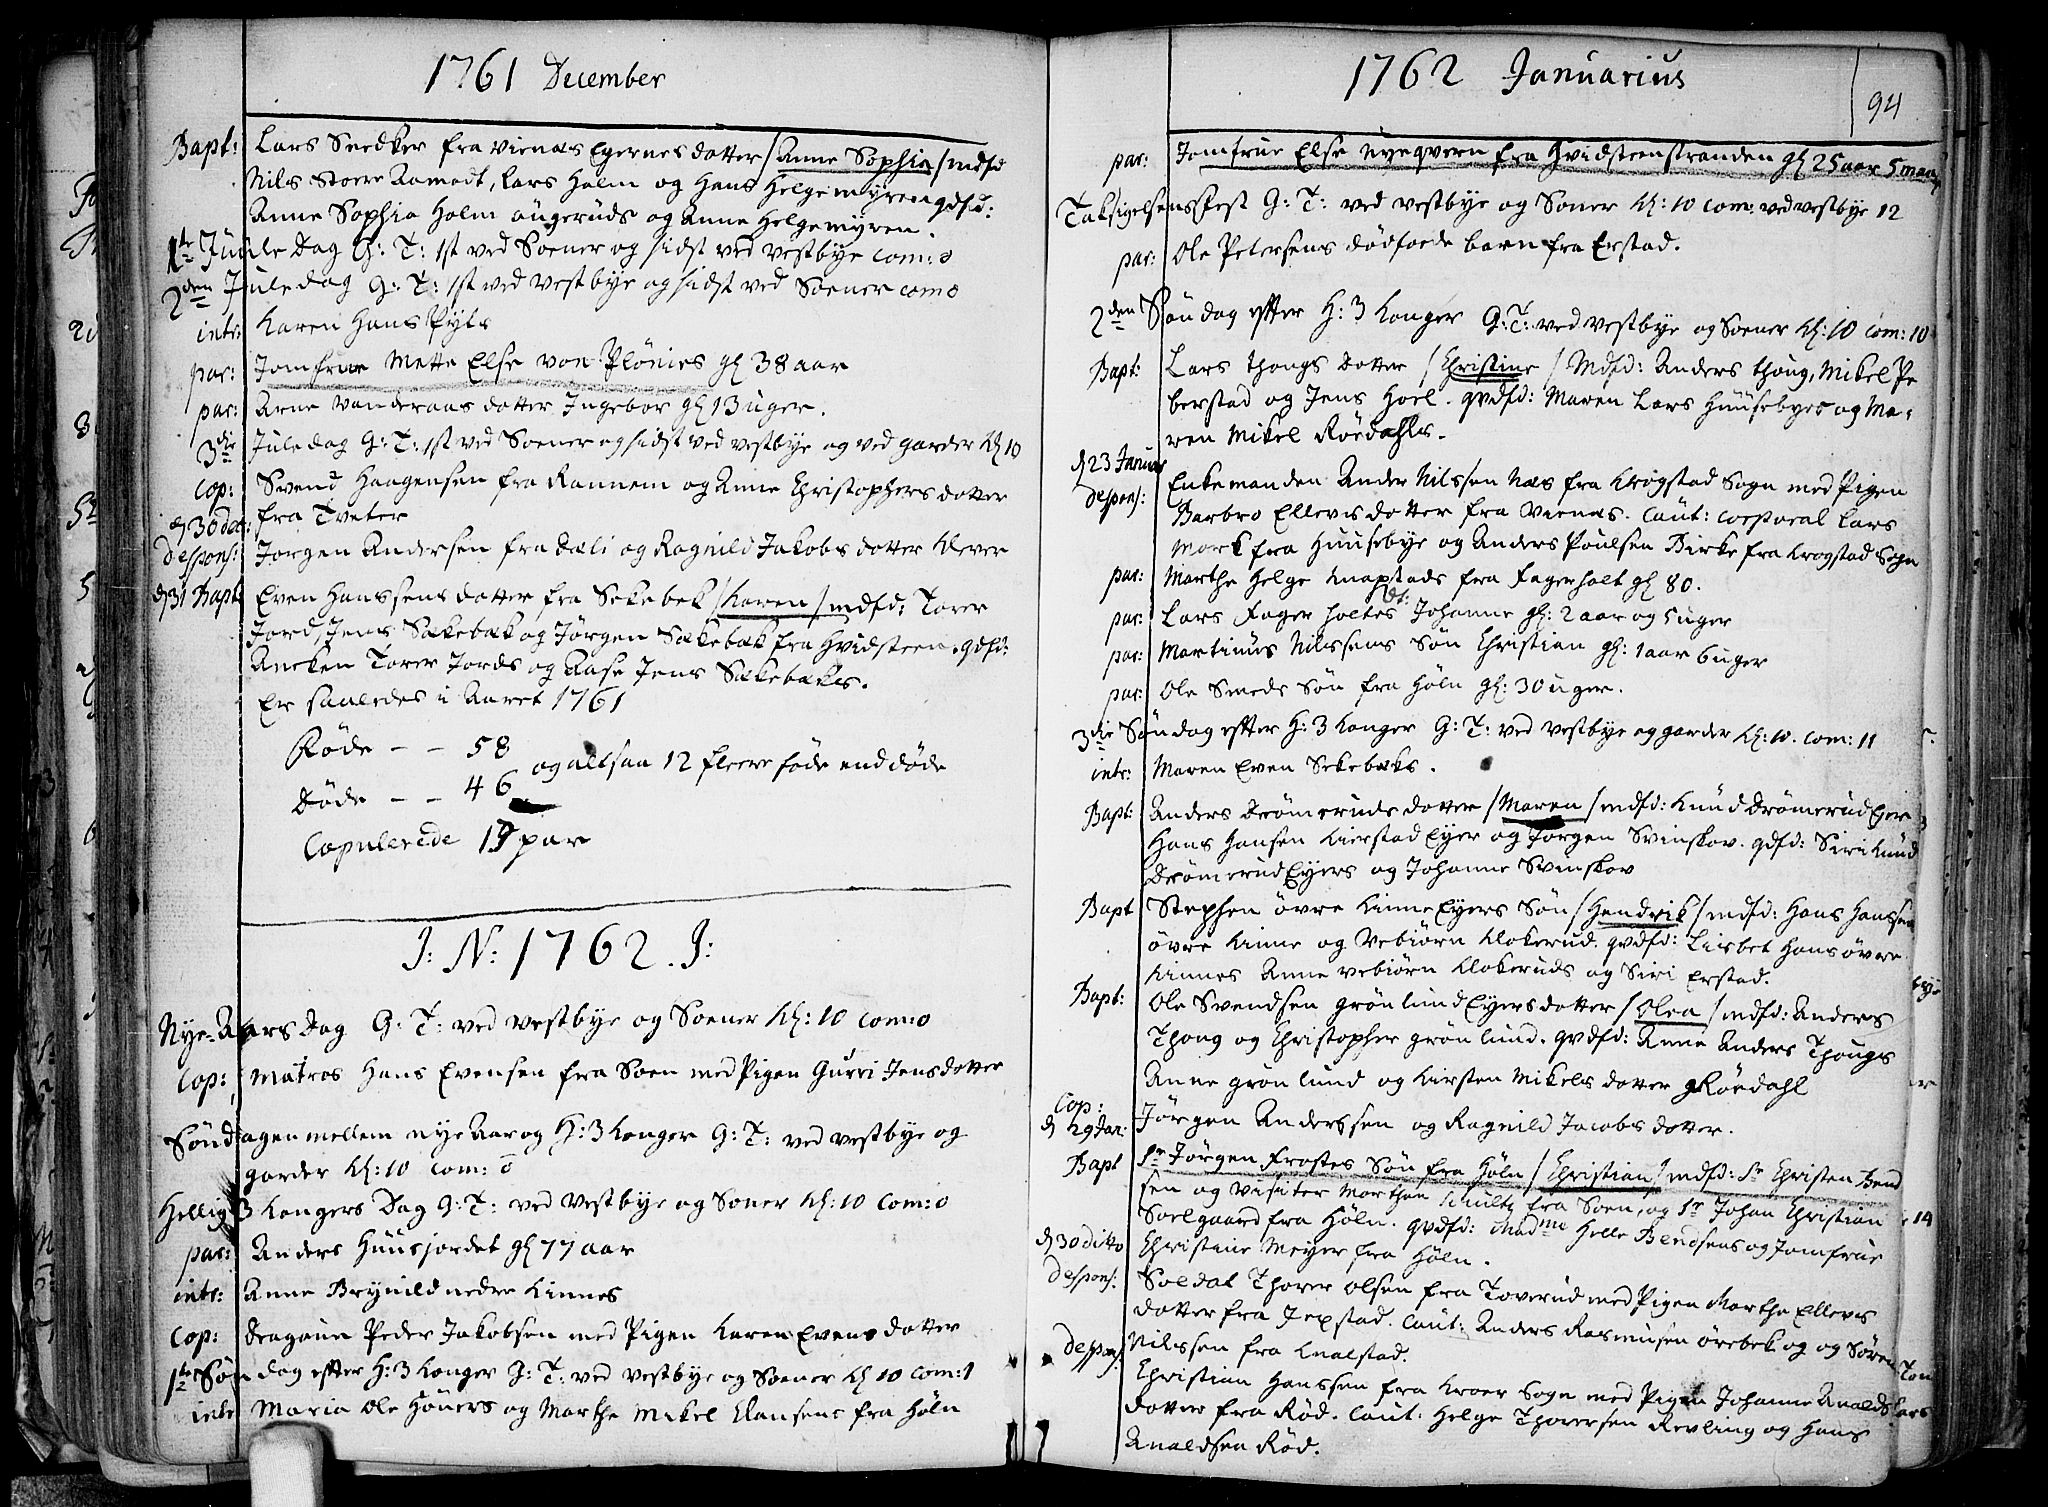 1761 December
Bapt: Lars Snedker fra Vienæs Eyernes dotter / Anne Sophia / mdfd
Nils Storre Aamodt, Lars Holm og Hans Helgemyren qdfd:
Anne Sophia Holm Augeruds og Anne Helgemyren.
1te Juule Dag G: T: 1st ved Soener og sidst ved Vestbye Com: 0
2den Juledag G: T: 1st ved Vestbye og sidst ved Soener Com 0
intr: Karen Hans Pyts
par: Jomfrue Mette Else von Plönies gl 38 aar
par: Arne Vanderaas dotter Ingebor gl 13 uger.
3die Juledag G: T: 1st ved Soener og sidst ved Vestbye og ved Garder Kl 10
Cop: Svend Haagensen fra Rannem og Anne Christophers dotter
fra Tveter
d 30 dec:
despons: Jorgen Andersen fra Dæli og Ragnild Jakobs dotter Klever
d 31 Bapt: Even Hanssens dotter fra Sekebek / Karen / mdfd: Torer
Jord, Jens Sækebæk og Jörgen Sækebæk fra Hvidsteen. qdfd:
Aneken Torer Jords og Aase Jens Sækebæks.
Er saaledes i Aaret 1761
Födde - - 58
og altsaa 12 fleere föde end döde
Döde - - 46
Copulerede 19 par
J: N: 1762. J:
Nye-Aars Dag G: T: ved Vestbye og Soener Kl: 10 Com: 0
Cop: Matros Hans Evensen fra Soen med Pigen Gurri Jensdotter
Söndagen mellem nye Aar og H: 3 Konger G: T: ved Vestbye og
Garder Kl: 10 Com: 0
Hellig 3 Kongers Dag G: T: ved Vestbye og Soner Kl: 10 Com: 0
par: Anders Huusjordet gl 77 aar
intr: Anne Brynild nedre Kinnes
Cop: Dragoun Peder Jakobsen med Pigen Karen Evens dotter
1te Söndag effter H: 3 Konger G: T: ved Vestbye og Soener Kl 10 Com: 1
intr Maria Ole Höners og Marthe Mikel Clausens fra Höln
1762 Januarius
94
par: Jomfrue Else Nyeqvern fra Hvidsteenstranden gl 25 aar 5 maan
Taksigelsensfest G: T: ved Vestbye og Soner Kl: 10 Com: ved Vestbye 12
par: Ole Petersens dödfoede barn fra Erstad.
2den Söndag effter H: 3 Konger G: T: ved Vestbye og Soener Kl: 10 Com: 10
Bapt: Lars Thougs Dotter / Christine / Mdfd: Anders Thoug, Mikel Pe
berstad og Jens Hoel. qvdfd: Maren Lars Huusebyes og Ma-
ren Mikel Röedahls.
d 23 Januar
despons: Enkemanden Ander Nilssen Næs fra Krogstad Sogn med Pigen
Barbro Ellevs dotter fra Viernæs. Caut: Corporal Lars
Mork fra Huusebye og Anders Poulsen Birke fra Krogstad Sogn
par: Marthe Helge Knapstads fra Fagerholt gl 80.
par: Lars Fager holtes dt: Johanne gl: 2 aar og 5 uger
par: Martinus Nilssens Sön Christian gl: 1 aar 6 uger
par: Ole Smeds Sön fra Höln gl: 30 uger.
3die Söndag effter H: 3 Konger G: T: ved Vestbye og Garder Kl: 10. Com: 11
intr: Maren Even Sekebæks.
Bapt: Anders Drömeruds dotter / Maren / mdfd: Knud Drömerud Eyer
Hans Hansen Kierstad Eyer og Jörgen Svinskov. qdfd: Siri Knud
Drömerud Eyers og Johanne Svinskov
Bapt Stephen övre Kinne Eyers Sön / Hendrik / mdfd: Hans Hanssen
övre Kinne og Vebiörn Klokerud. qvdfd: Lisbet Hans övre
Kinnes Anne Vebiörn Klokeruds og Siri Erstad.
Bapt: Ole Svendsen Grönlund Eyers dotter / Olea / mdfd: Anders
Thoug og Christopher Grönlund. qvdfd: Anne Anders Thougs
Anne Grönlund og Kirsten Mikels dotter Röedahl
Cop:
d 29 Jan: Jörgen Anderssen og Ragnild Jacobs dotter.
Bapt Sr Jörgen Frostes Sön fra Höln / Christian / mdfd: Sr Christen Bend
sen og Visiter Morthen Schultz fra Soen, og Sr Johan Christian
Soelgaard fra Höln. qvdfd: Madme Helle Bendsens og Jomfrue
Christine Meyer fra Höln.
d 30 ditto
despons: Soldat Thorer Olsen fra Toverud med Pigen Marthe Ellevs
dotter fra Jepstad. Caut: Anders Rasmusen Örebek og og Sören
Nilssen fra Knalstad.
despons: Christian Hanssen fra Kroer Sogn med Pigen Johanne Analds
dotter fra Röd. Caut: Helge Thorersen Revling og Hans
Analdsen Röd.